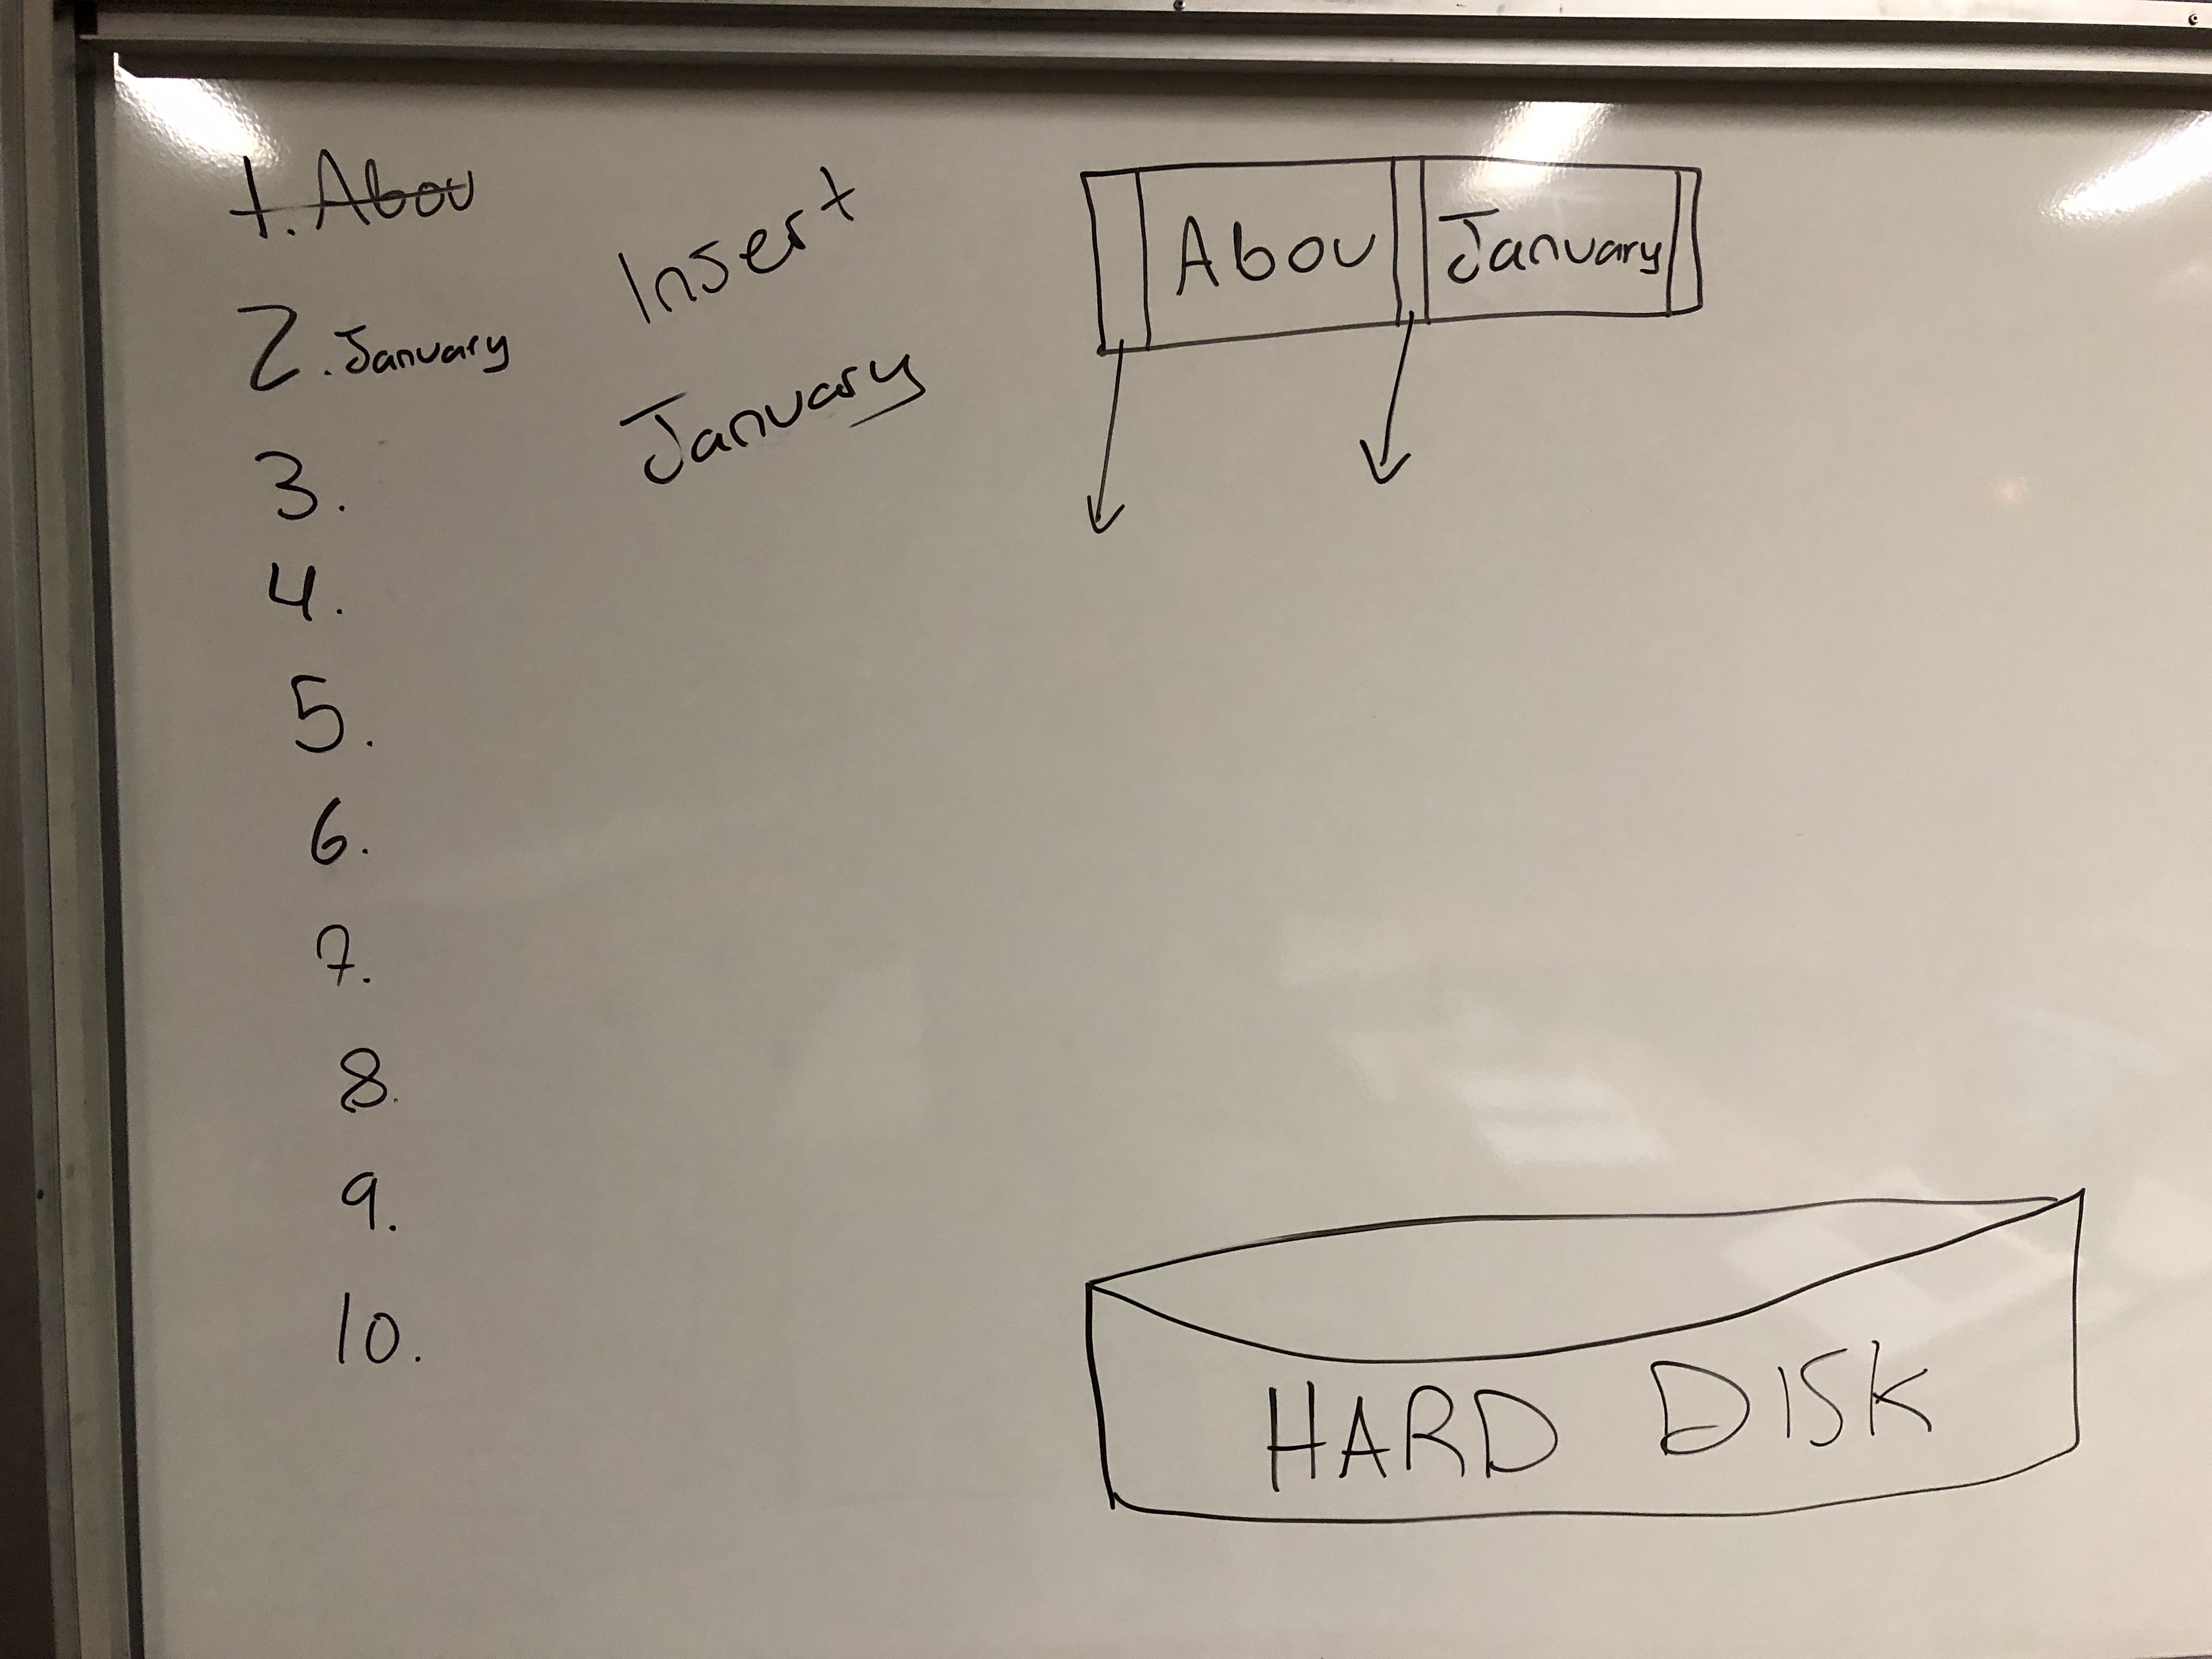 1. Abou
2. January
3.
4.
5.
6.
7.
8.
9.
10.
Insert
January
Abou January
HARD DISK